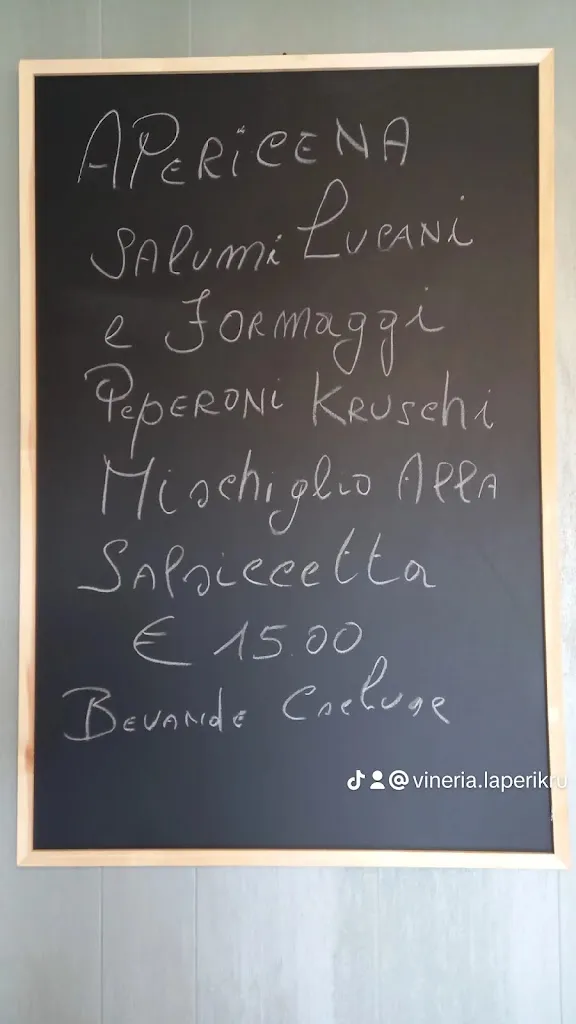 APERiCENA
SAlumi LUCANi
e FORmaggi
PepERONi KRUSchi
Mischiglio Alla
Salsiccetta
€ 15.00
BEVANdE Escluse
@vineria.laperikru